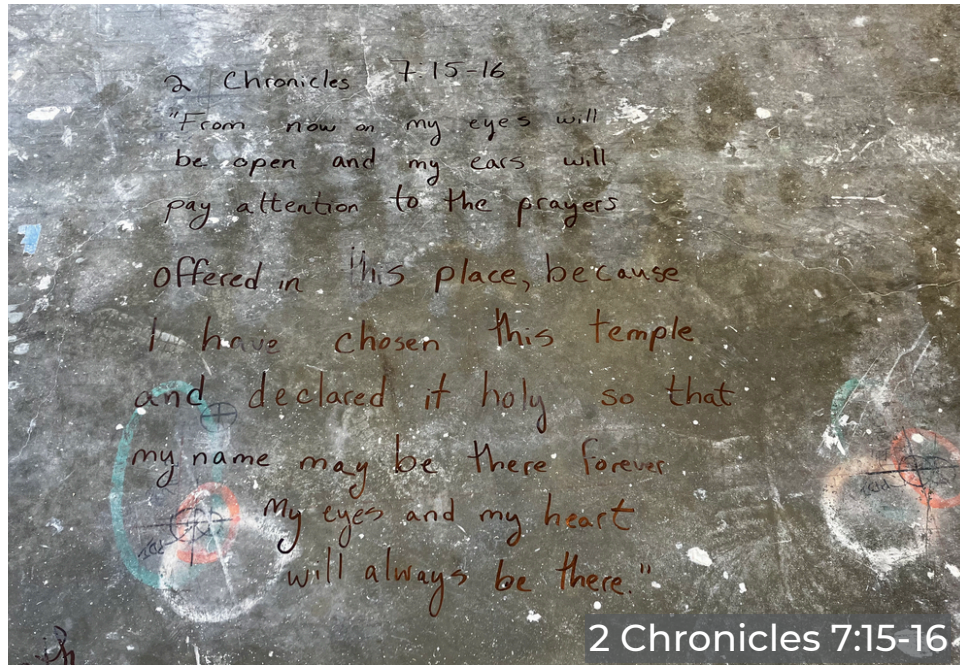 2 Chronicles 7:15-16
"From now on my eyes will
be open and my ears will
pay attention to the prayers
offered in this place, because
I have chosen this temple
and declared it holy so that
my name may be there forever
My eyes and my heart
will always be there."
2 Chronicles 7:15-16